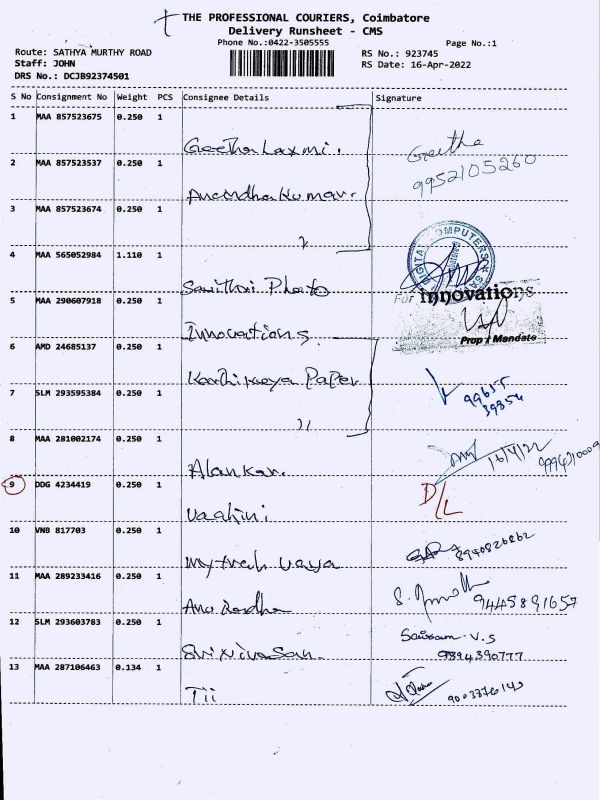 THE PROFESSIONAL COURIERS, Coimbatore
Delivery Runsheet - CMS
Phone No.:0422-3505555
Page No.:1
Route: SATHYA MURTHY ROAD
RS No.: 923745
Staff: JOHN
RS Date: 16-Apr-2022
DRS No.: DCJB92374501
S No Consignment No Weight PCS Consignee Details Signature
1 MAA 857523675 0.250 1
Geetha Laxmi. Geetha
9952105260
2 MAA 857523537 0.250 1
Anandha Kumar.
3 MAA 857523674 0.250 1
4 MAA 565052984 1.110 1
DIGITAL COMPUTERS
Savithri Photo
For innovations
5 MAA 290607918 0.250 1
Innovations
Prop / Mandate
6 AMD 24685137 0.250 1
Karthikeya Paper
7 SLM 293595384 0.250 1
99655
39854
8 MAA 281002174 0.250 1
16/4/22
Alankar.
9 DDG 4234419 0.250 1
D/L
Vaahini
10 VNB 817703 0.250 1
8940826862
Mytreh Vaya
11 MAA 289233416 0.250 1
9445891657
Anu Radha
12 SLM 293603783 0.250 1
V.S
Srinivasan.
9894390777
13 MAA 287106463 0.134 1
Tii
9003376140